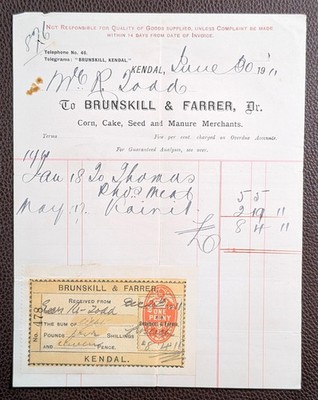 876
NOT RESPONSIBLE FOR QUALITY OF GOODS SUPPLIED, UNLESS COMPLAINT BE MADE
WITHIN 14 DAYS FROM DATE OF INVOICE.
Telephone No. 45.
Telegrams: "BRUNSKILL, KENDAL."
KENDAL, June 30 1911
Mr R. Todd
To BRUNSKILL & FARRER, Dr.
Corn, Cake, Seed and Manure Merchants.
Terms Five per cent. charged on Overdue Accounts.
For Guaranteed Analyses, see over.
Jan 18 To Thomas
Phos Meal 5 5
May 17 Kainit 2 19 11
£ 8 4 11
BRUNSKILL & FARRER,
RECEIVED FROM
R. Todd
THE SUM
POUNDS SHILLINGS
AND PENCE.
No. 478
ONE PENNY
£8 4 11
KENDAL.